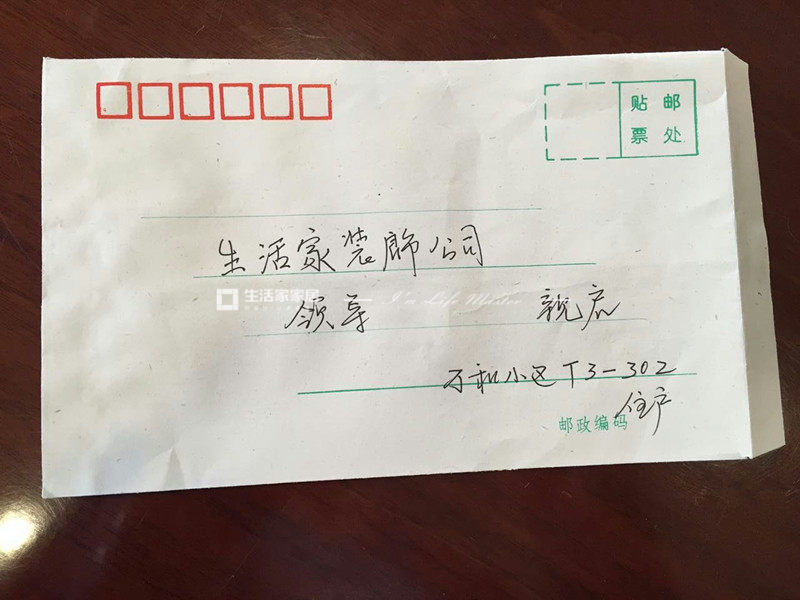 贴邮
票处
生活家装饰公司
生活家家居 I'm Life Master
领导 亲启
万和小区T3-302
住户
邮政编码